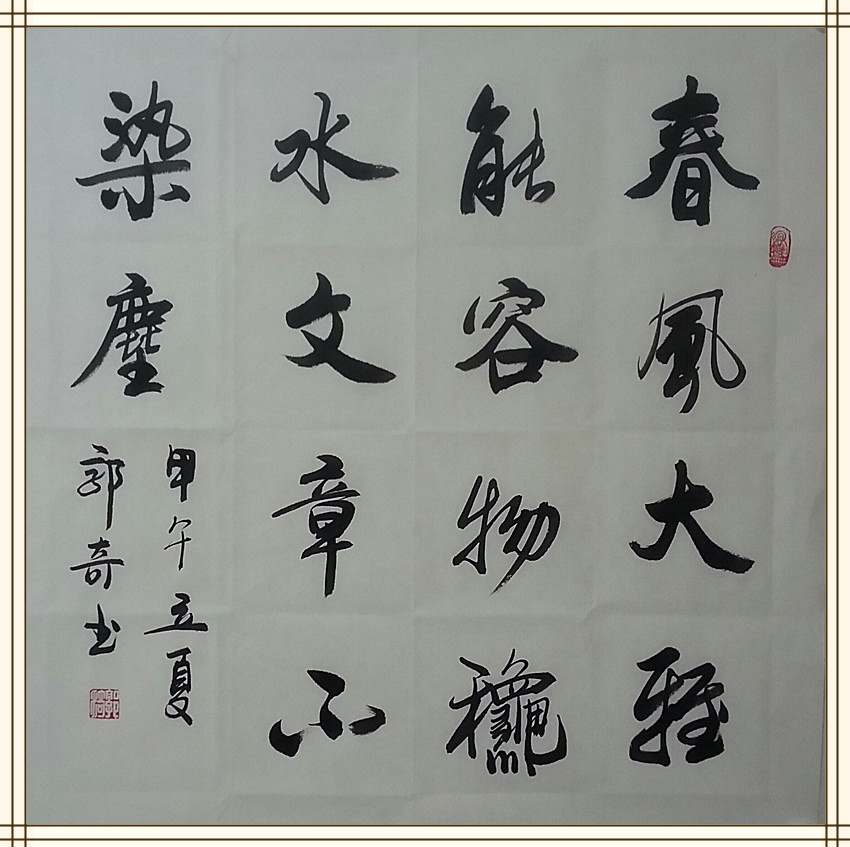 春風大雅
能容物龝
水文章不
染塵
甲午立夏
郭奇书